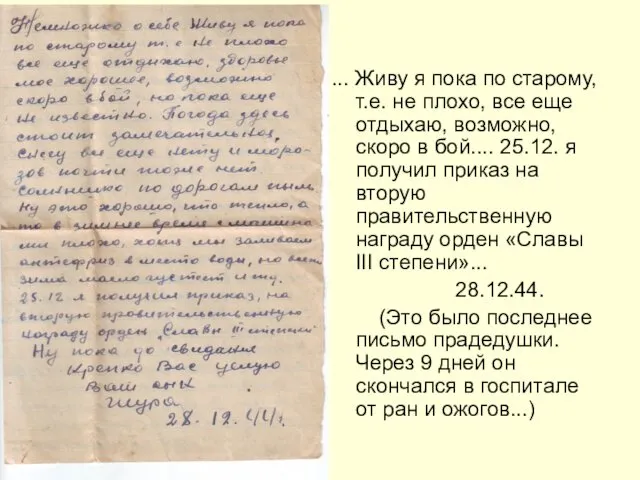 Немножко о себе Живу я пока
по старому т.е не плохо
все еще отдыхаю, здоровье
мое хорошое, возможно
скоро в бой, но пока еще
не известно. Погода здесь
стоит замечательная,
снегу все еще нету и моро-
зов почти тоже нет.
Солнышко по дорогам пыль
Ну это хорошо, что тепло, а
то в зимнее время с машина
ми плохо, хоть мы заливаем
антефриз в место воды, но
зима масло густеет и тд.
25.12 я получил приказ, на
вторую правительственную
награду орден „Славы III степени"
Ну пока до свидания
Крепко Вас целую
Ваш сын
Шура
28. 12. 44г.
... Живу я пока по старому,
т.е. не плохо, все еще
отдыхаю, возможно,
скоро в бой.... 25.12. я
получил приказ на
вторую
правительственную
награду орден «Славы
III степени»...
28.12.44.
(Это было последнее
письмо прадедушки.
Через 9 дней он
скончался в госпитале
от ран и ожогов...)